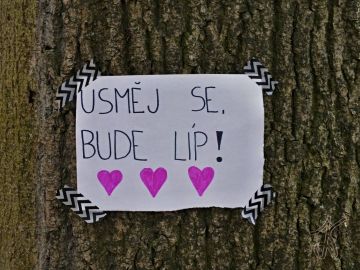 USMĚJ SE,
BUDE LÍP!